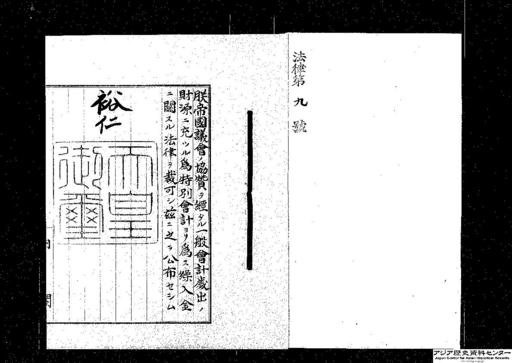 法律第九號
朕帝國議會ノ協贊ヲ經タル一般會計歲出ノ
財源ニ充ツル爲特別會計ヨリ爲ス繰入金
ニ關スル法律ヲ裁可シ茲ニ之ヲ公布セシム
裕仁
天皇
御璽
内閣
アジア歴史資料センター
Japan Center for Asian Historical Records